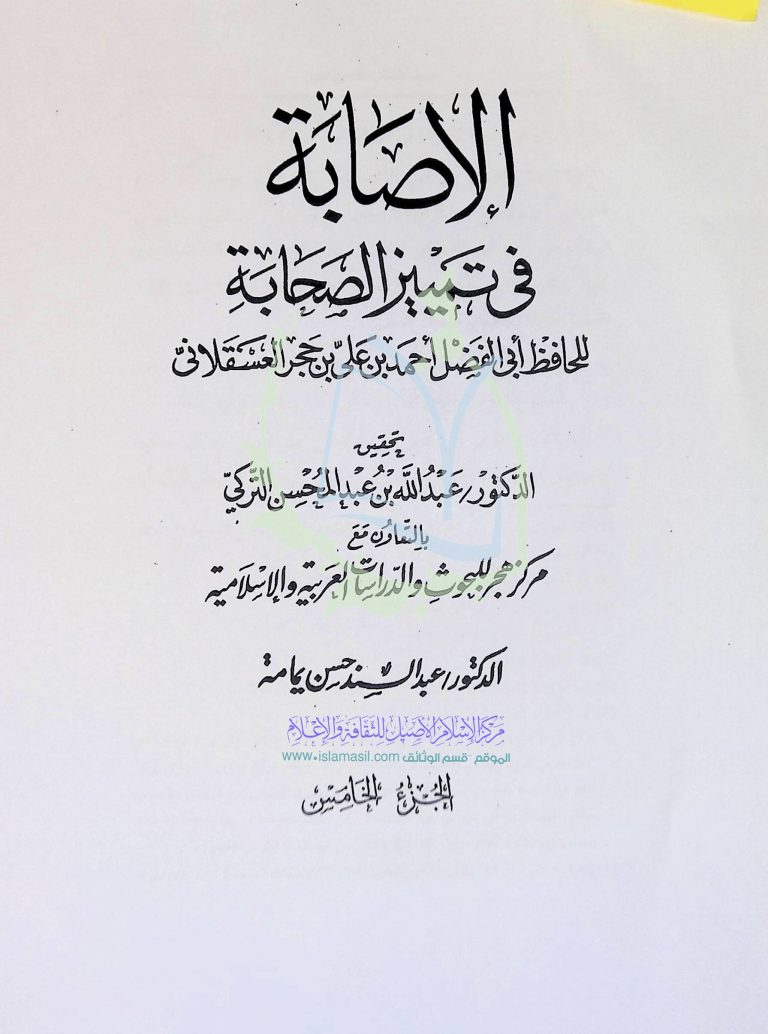 الإصَابَة
فى تمييز الصَّحَابَةِ
للحافظ أبى الفَضْل أحمد بن عَلىّ بن حَجَر العَسْقَلَانىّ
تحقيق
الدّكتور/ عَبْدُ اللَّه بْنُ عَبْد المُحْسِن التّركيّ
بالتّعاون مَعَ
مركز هجر للبحوثِ والدّراسَات العَربية والإسْلَامية
الدكتور/ عبد السند حسن يمامة
مركز الإسلام الأصيل للثقافة والإعلام
الموقع - قسم الوثائق www.islamasil.com
الجُزءُ الخَامِسُ